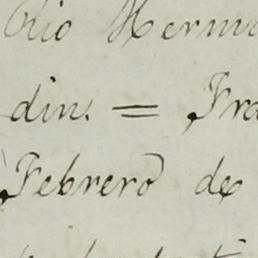 Rio Herma
din. = Fra
Febrero de